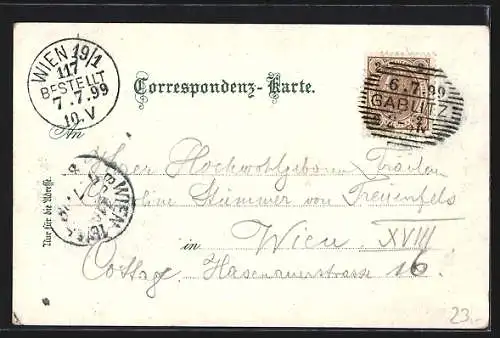 WIEN 19/1
117
BESTELLT
7.7.99
10.V
Correspondenz-Karte.
2
6.7.99
GABLITZ
An
Hochwohlgeboren Fräulein
Stummer von Treuenfels
in Wien, XVIII
Cottage, Hasenauerstrasse 16.
Nur für die Adresse.
WIEN
23.-